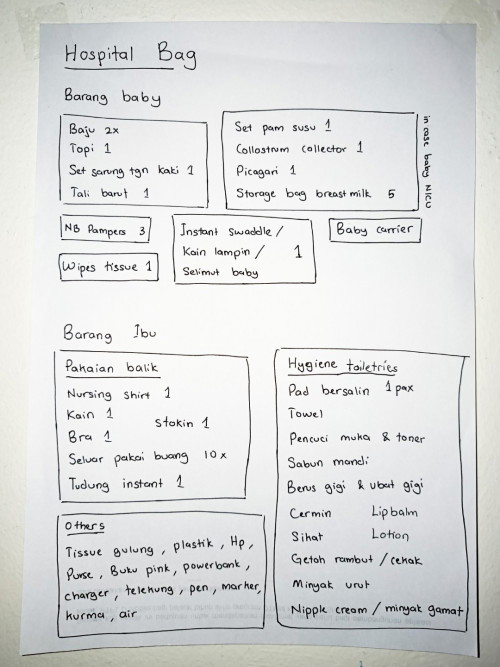 Hospital Bag
Barang baby
Baju 2x
Topi 1
Set sarung tgn kaki 1
Tali barut 1
Set pam susu 1
Collostrum collector 1
Picagari 1
Storage bag breastmilk 5
in case baby NICU
NB Pampers 3
Wipes tissue 1
Instant swaddle /
Kain lampin / 1
Selimut baby
Baby carrier
Barang Ibu
Pakaian balik
Nursing shirt 1
Kain 1
Stokin 1
Bra 1
Seluar pakai buang 10x
Tudung instant 1
Others
Tissue gulung, plastik, Hp,
Purse, Buku pink, powerbank,
charger, telekung, pen, marker,
kurma, air
Hygiene tailetries
Pad bersalin 1 pax
Towel
Pencuci muka & toner
Sabun mandi
Berus gigi & ubat gigi
Cermin Lipbalm
Sihat Lotion
Getah rambut / cekak
Minyak urut
Nipple cream / minyak gamat